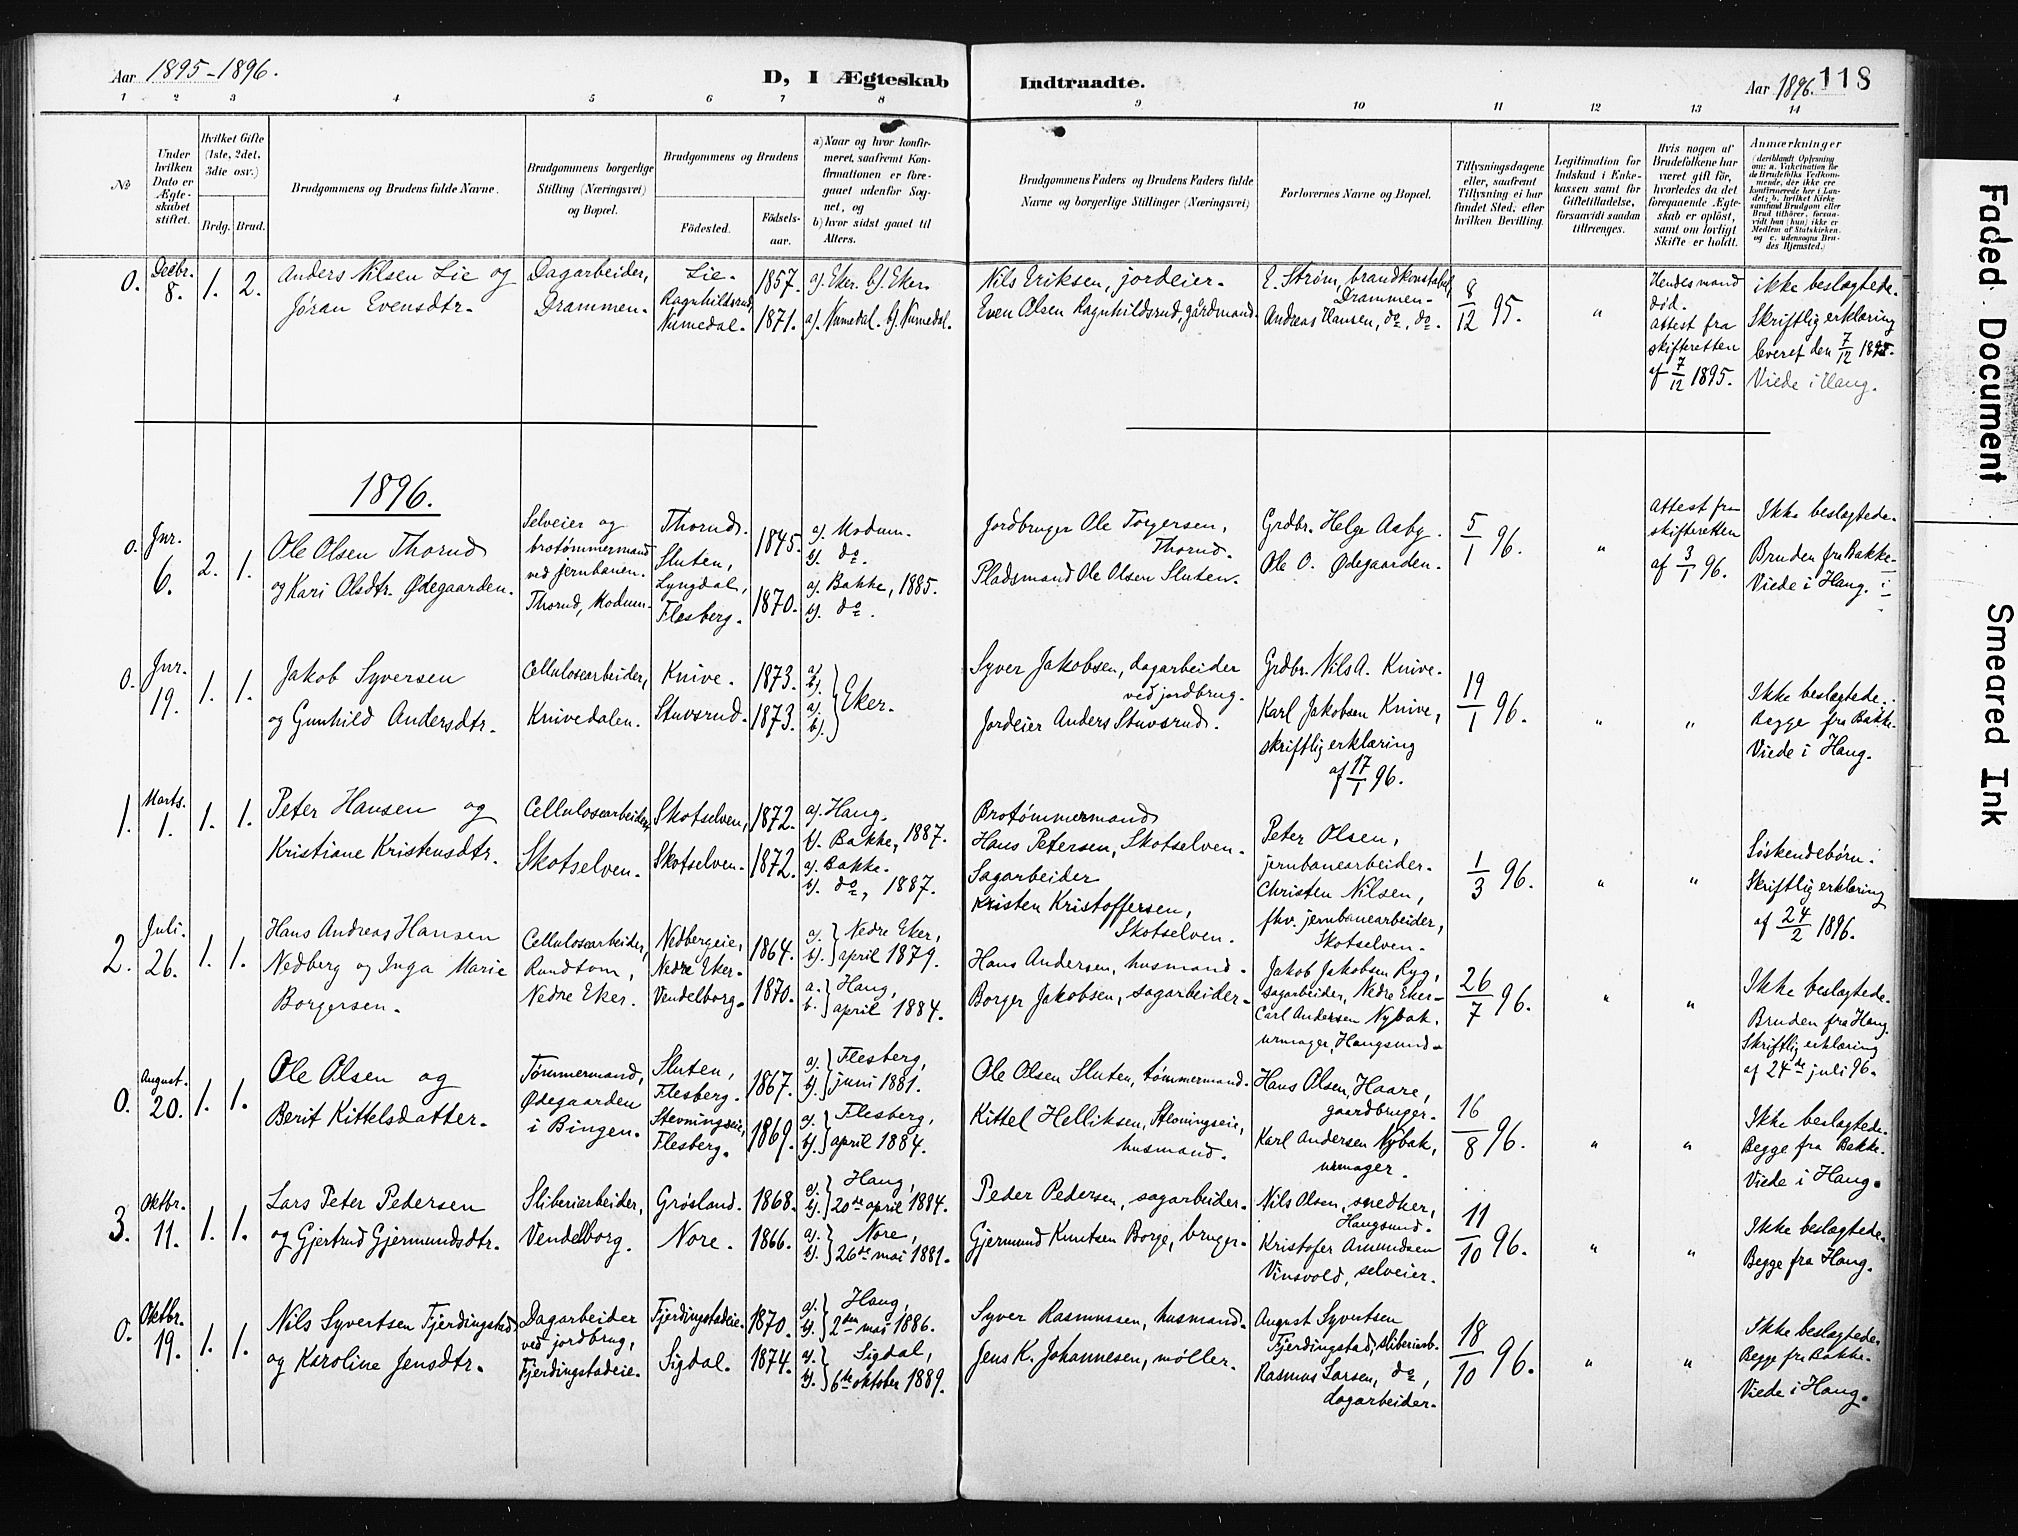 Aar 1895-1896.
D, I Ægteskab Indtraadte.
Aar 1896. 118
1 2 3 4 5 6 7 8 9 10 11 12 13 14
No
Under hvilken Dato er Ægteskabet stiftet.
Hvilket Gifte (1ste, 2det, 3die osv.)
Brdg. Brud.
Brudgommens og Brudens fulde Navne.
Brudgommens borgerlige Stilling (Næringsvei) og Bopæl.
Brudgommens og Brudens
Fødested.
Fødselsaar.
a) Naar og hvor konfirmeret, saafremt Konfirmationen er foregaaet udenfor Sognet, og
b) hvor sidst gaaet til Alters.
Brudgommens Faders og Brudens Faders fulde Navne og borgerlige Stillinger (Næringsvei)
Forlovernes Navne og Bopæl.
Tillysningsdagene eller, saafremt Tillysning ei har fundet Sted, efter hvilken Bevilling.
Legitimation for Indskud i Enkekassen samt for Giftetilladelse, forsaavidt saadan tiltrænges.
Hvis nogen af Brudefolkene har været gift før, hvorledes da det foregaaende Ægteskab er opløst, samt om lovligt Skifte er holdt.
Anmærkninger (deriblandt Oplysning om: a. Vakcination for de Brudefolks Vedkommende, der ikke ere konfirmerede her i Landet; b. hvilket Kirkesamfund Brudgom eller Brud tilhører, forsaavidt han (hun) ikke er Medlem af Statskirken og c. udensogns Brudes Hjemsted.)
0. Decbr. 8. 1. 2.
Anders Nilsen Lie og
Jøran Evensdtr.
Dagarbeider,
Drammen.
Lie.
Ragnhildsrud,
Numedal.
1857.
1871.
a). Eker. b). Eker.
a). Numedal. b). Numedal.
Nils Eriksen, jordeier.
Even Olsen Ragnhildsrud, gårdmand.
E. Strøm, brandkonstabel,
Drammen.
Andreas Hansen, do, do.
8/12 95.
"
Hendes mand
død.
Attest fra
skifteretten
af 7/12 1895.
ikke beslægtede.
Skriftlig erklæring
leveret den 7/12 1895.
Viede i Haug.
1896.
0. Jnr. 6. 2. 1.
Ole Olsen Thorud
og Kari Olsdtr. Ødegaarden.
Selveier og
brotømmermand
ved jernbanen.
Thorud, Modum.
Thorud.
Sluten,
Lyngdal,
Flesberg.
1845.
1870.
a). Modum.
b). do.
a). Bakke, 1885.
b). do.
Jordbruger Ole Torgersen,
Thorud.
Pladsmand Ole Olsen Sluten.
Grdbr. Helge Aasby.
Ole O. Ødegaarden.
5/1 96.
"
Attest fra
skifteretten
af 3/1 96.
Ikke beslægtede.
Bruden fra Bakke.
Viede i Haug.
0. Jnr. 19. 1. 1.
Jakob Syversen
og Gunhild Andersdtr.
Cellulosearbeider,
Knivedalen.
Knive.
Stuvsrud.
1873.
1873.
a).
b).
a).
b).
Eker.
Syver Jakobsen, dagarbeider
ved jordbrug.
Jordeier Anders Stuvsrud.
Grdbr. Nils A. Knive.
Karl Jakobsen Knive,
skriftlig erklæring
af 17/1 96.
19/1 96.
"
"
Ikke beslægtede.
Begge fra Bakke.
Viede i Haug.
1. Marts. 1. 1. 1.
Peter Hansen og
Kristiane Kristensdtr.
Cellulosearbeider,
Skotselven.
Skotselven,
Skotselven.
1872.
1872.
a). Haug.
b). Bakke, 1887.
a). Bakke.
b). do, 1887.
Brotømmermand
Hans Petersen, Skotselven.
Sagarbeider
Kristen Kristoffersen,
Skotselven.
Peter Olsen,
jernbanearbeider.
Christen Nilsen,
fhv. jernbanearbeider,
Skotselven.
1/3 96.
"
"
Søskendebørn.
Skriftlig erklæring
af 24/2 1896.
2. Juli. 26. 1. 1.
Hans Andreas Hansen
Nedberg og Inga Marie
Borgersen.
Cellulosearbeider,
Rundtom,
Nedre Eker.
Nedbergeie,
Nedre Eker.
Vendelborg.
1864.
1870.
a). Nedre Eker,
b). april 1879.
a. Haug,
b. april 1884.
Hans Andersen, husmand.
Borger Jakobsen, sagarbeider.
Jakob Jakobsen Ryg,
sagarbeider, Nedre Eker.
Carl Andersen Nybak,
urmager, Haugsund.
26/7 96.
"
"
Ikke beslægtede.
Bruden fra Haug.
Skriftlig erklæring
af 24de juli 96.
0. August. 20. 1. 1.
Ole Olsen og
Berit Kittelsdatter.
Tømmermand,
Ødegaarden
i Bingen.
Sluten,
Flesberg.
Stevningseie,
Flesberg.
1867.
1869.
a). Flesberg,
b). juni 1881.
a). Flesberg,
b). april 1884.
Ole Olsen Sluten, tømmermand.
Kittel Helliksen, Stevningseie,
husmand.
Hans Olsen, Haare,
gaardbruger.
Karl Andersen Nybak,
urmager.
16/8 96.
"
"
Ikke beslægtede.
Begge fra Bakke.
Viede i Haug.
3. Oktbr. 11. 1. 1.
Lars Peter Pedersen
og Gjertrud Gjermundsdtr.
Sliberiarbeider,
Vendelborg.
Grøsland.
Nore.
1868.
1866.
a). Haug,
b). 20de april 1884.
a). Nore,
b). 26de mai 1881.
Peder Pedersen, sagarbeider.
Gjermund Knutsen Borge, bruger.
Nils Olsen, snedker,
Haugsund.
Kristofer Amundsen
Vinsvold, selveier.
11/10 96.
"
"
Ikke beslægtede.
Begge fra Haug.
0. Oktbr. 19. 1. 1.
Nils Syvertsen Fjerdingstad
og Karoline Jensdtr.
Dagarbeider
ved jordbrug,
Fjerdingstadeie.
Fjerdingstadeie.
Sigdal.
1870.
1874.
a). Haug,
b). 2den mai 1886.
a). Sigdal,
b). 6te oktober 1889.
Syver Rasmussen, husmand.
Jens K. Johannesen, møller.
August Syvertsen
Fjerdingstad, sliberiarb.
Rasmus Larsen, do,
dagarbeider.
18/10 96.
"
"
Ikke beslægtede.
Begge fra Bakke.
Viede i Haug.
Faded Document
Smeared Ink